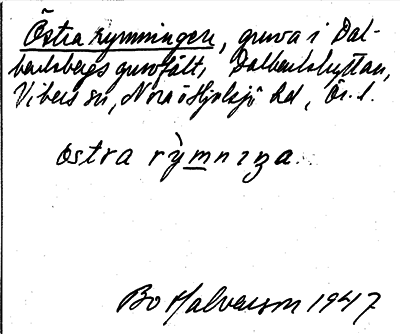 Östra rymningen, gruva i Dal-
karlsbergs gruvfält, Dalkarlshyttan,
Vikers sn, Nora o Hjulsjö hd, Ör. l.
östra rỳmnıŋa.
Bo Halvarson 1947